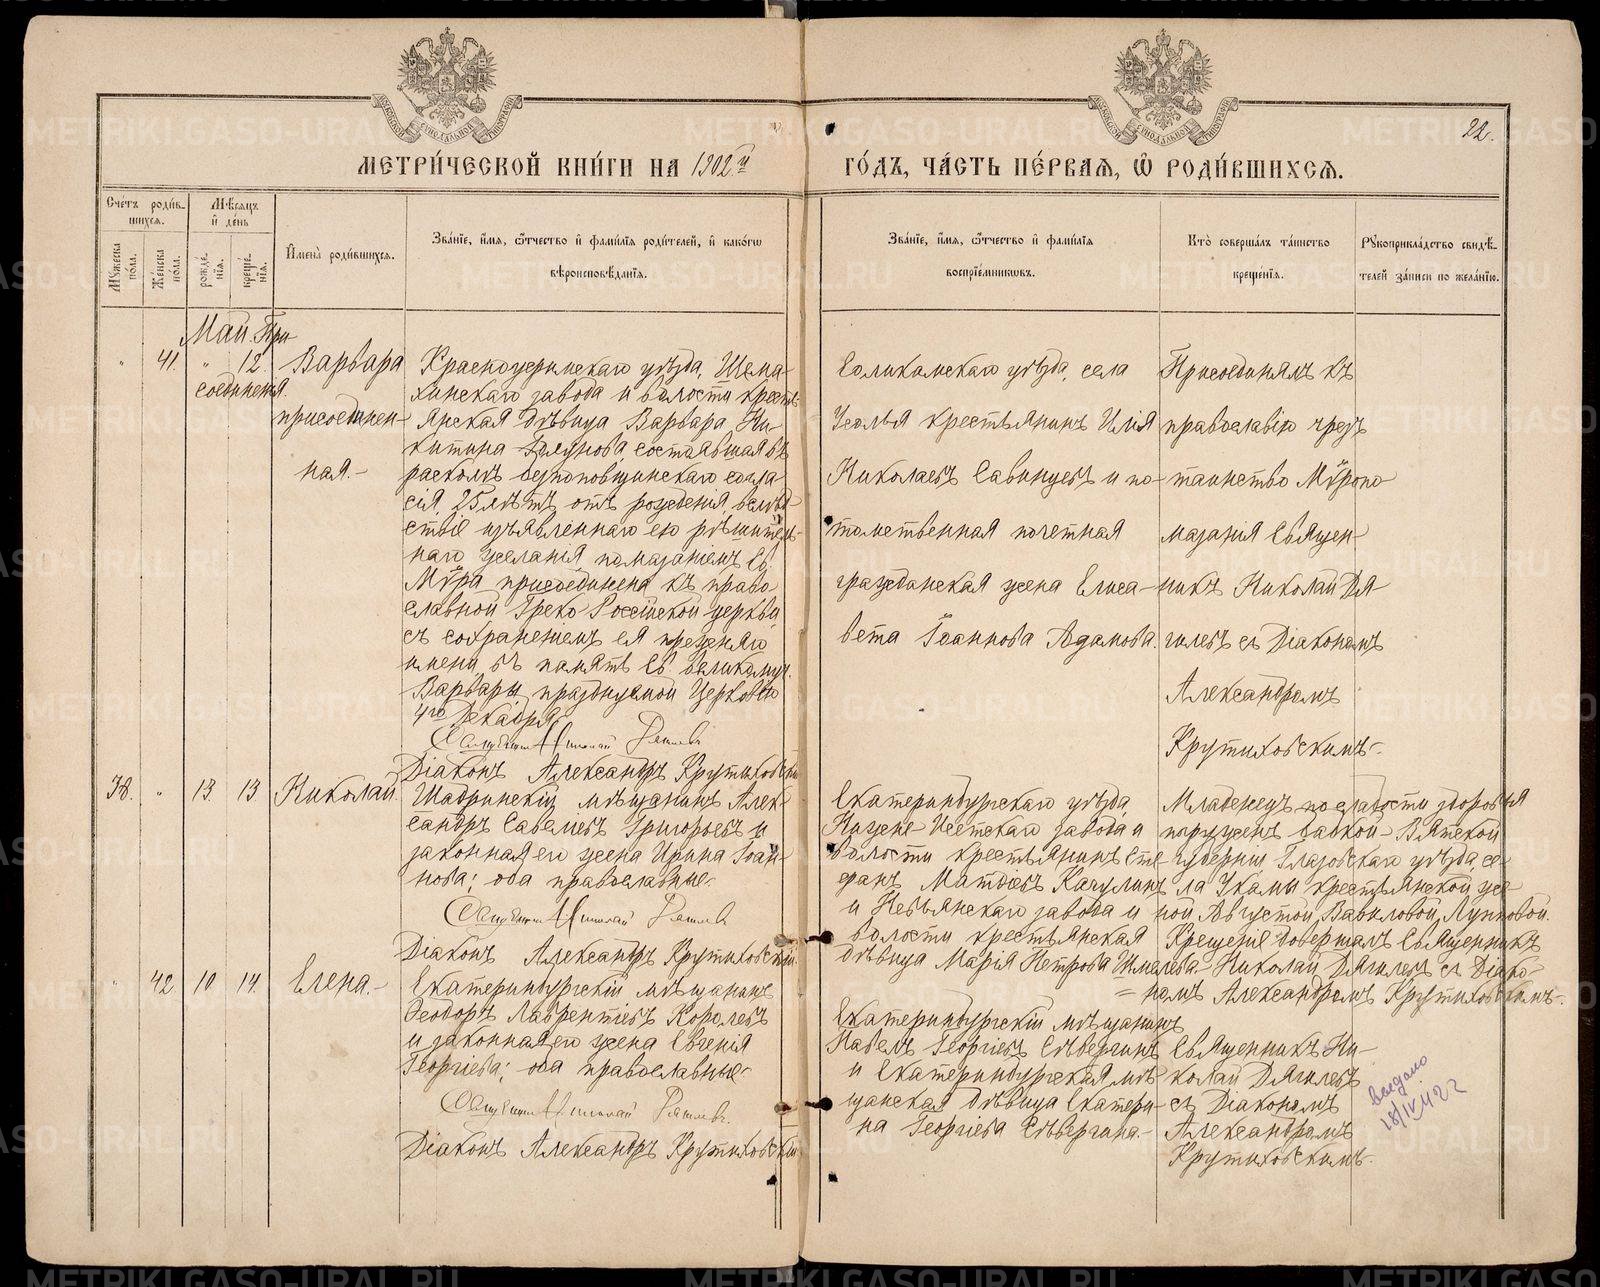 22.
МЕТРИ́ЧЕСКОЙ КНИ́ГИ НА 1902й ГО́ДЪ, ЧА́СТЬ ПЕ́РВАЯ, Ѡ РОДИ́ВШИХСЯ.
Сче́тъ роди́в-
шихся.
Мѣ́сяцъ
и де́нь
Мꙋ́жеска
по́ла.
Же́нска
по́ла.
рожде́-
нія.
креще́-
нія.
Имена̀ роди́вшихся.
Зва́ніе, и́мя, ѻ́тчество и фами́лія роди́телей, и како́гѡ
вѣроисповѣ́данія.
Зва́ніе, и́мя, ѻ́тчество и фами́лія
воспріе́мникѡвъ.
Кто̀ соверша́лъ та́инство
креще́нія.
Рꙋкоприкла́дство свидѣ́-
телей за́писи по жела́нію.
Май. При
соединенія
" 41. " 12
Варвара
присоединен-
ная.-
Красноуфимскаго уѣзда, Шема-
хинскаго завода и волости кресть-
янская дѣвица Варвара Ни-
китина состоявшая въ
расколѣ безпоповщинскаго согла-
сія, 25 лѣтъ отъ рожденія, вслѣд-
ствіе изъявленнаго ею рѣшитель-
наго желанія помазаніемъ Св.
Мѵра присоединена къ право-
славной Греко Россійской церкви
съ сохраненіемъ ея прежняго
имени въ память Св. великомуч.
Варвары, празднуемой Церковію
4го Декабря.
Священникъ Николай Дягилевъ
Діаконъ Александръ Крутиховскій
Соликамскаго уѣзда, села
Усолья крестьянинъ Илія
Николаевъ Савинцевъ и по-
томственная почетная
гражданская жена Елиса-
вета Іоаннова Адамова.
Присоединялъ къ
православію чрезъ
таинство Мѵропо-
мазанія Священ-
никъ Николай Дя-
гилевъ съ Діакономъ
Александромъ
Крутиховскимъ.-
38. " 13. 13. Николай.
Шадринскій мѣщанинъ Алек-
сандръ Савеліевъ Григорьевъ и
законная его жена Ирина Іоан-
нова; оба православные.-
Священникъ Николай Дягилевъ
Діаконъ Александръ Крутиховскій
Екатеринбургскаго уѣзда
Нижне-Исетскаго завода и
волости крестьянинъ Сте-
фанъ Матѳіевъ Качулинъ
и Невьянскаго завода и
волости крестьянская
дѣвица Марія Петрова Шмелева.-
Младенецъ по слабости здоровья
погруженъ бабкой- Вятской
губерніи, Глазовскаго уѣзда, се-
ла Укамы крестьянской же-
ной Августой Вавиловой Луповой.
Крещеніе довершалъ Священникъ
Николай Дягилевъ съ Діако-
=номъ Александромъ Крутиховскимъ-.
" 42 10 14. Елена.-
Екатеринбургскій мѣщанинъ
Ѳеодоръ Лаврентіевъ Королевъ
и законная его жена Евгенія
Георгіева; оба православные.-
Священникъ Николай Дягилевъ.
Діаконъ Александръ Крутиховскій
Екатеринбургскій мѣщанинъ
Павелъ Георгіевъ Сѣвергинъ
и Екатеринбургская мѣ-
щанская дѣвица Екатери-
на Георгіева Сѣвергина.-
Священникъ Ни-
колай Дягилевъ
съ Діакономъ
Александромъ
Крутиховскимъ-.
выдано
18/IV 1922